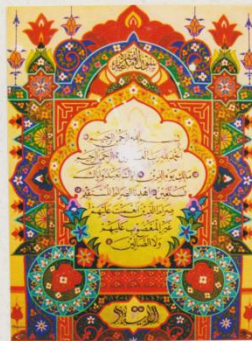 بسم الله الرحمن الرحيم
الحمد لله رب العالمين الرحمن الرحيم
مالك يوم الدين إياك نعبد وإياك
نستعين اهدنا الصراط المستقيم
صراط الذين أنعمت عليهم
غير المغضوب عليهم
ولا الضالين